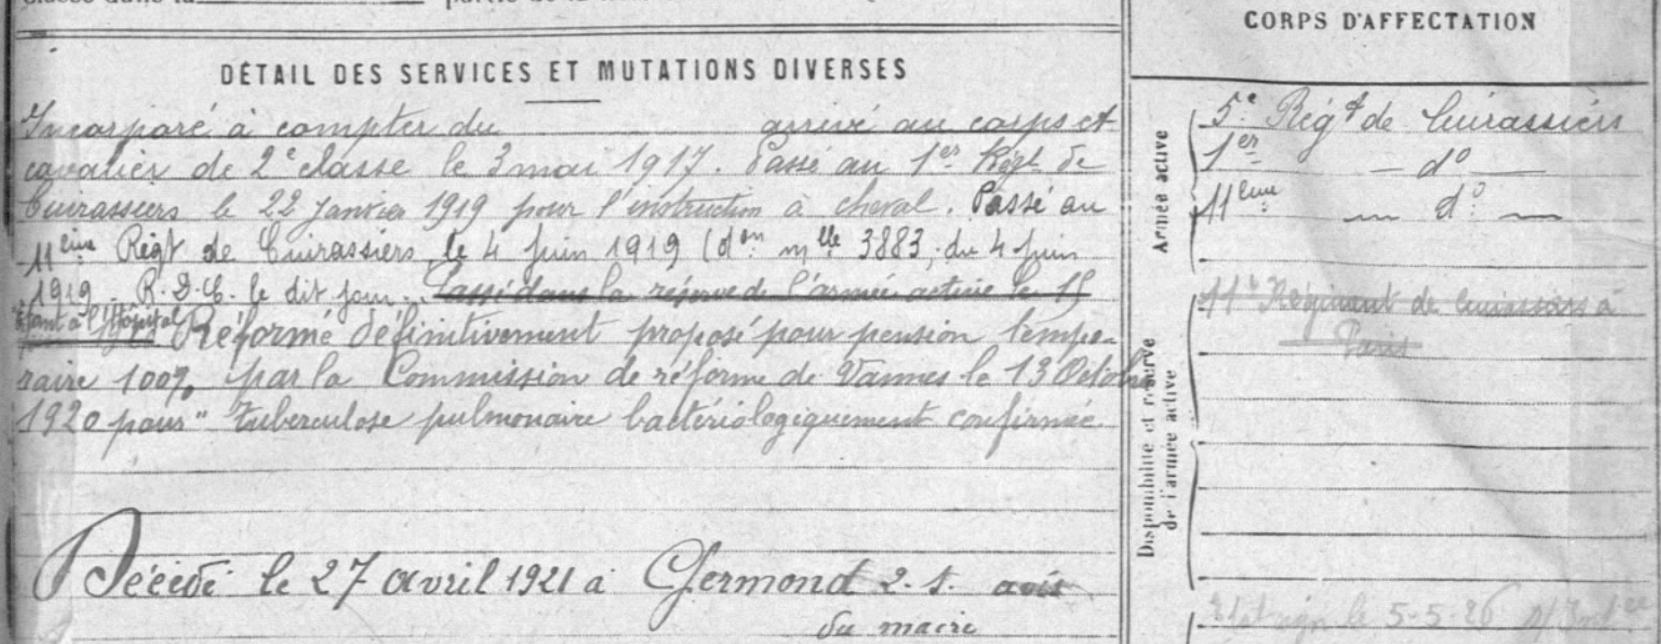 CORPS D'AFFECTATION
DÉTAIL DES SERVICES ET MUTATIONS DIVERSES
Incorporé à compter du arrivé au corps et
cavalier de 2e classe le 3 mai 1917. Passé au 1er Régt de
Cuirassiers le 22 Janvier 1919 pour l'instruction à cheval. Passé au
11ème Régt de Cuirassiers le 4 Juin 1919 (don mlle 3883, du 4 Juin
1919. R.D.C. le dit jour. Passé dans la réserve de l'armée active le 15
Etant à l'Hôpital Réformé définitivement proposé pour pension tempo-
raire 100% par la Commission de réforme de Vannes le 13 Octobre
1920 pour " Tuberculose pulmonaire bactériologiquement confirmée.
Décédé le 27 avril 1921 à Germond 2-S. avis
du maire
Armée active
5e Régt de Cuirassiers
1er — do —
11ème — do —
Disponibilité et réserve
de l'armée active
11e Régiment de Cuirassiers à
Paris
le 5-5-26